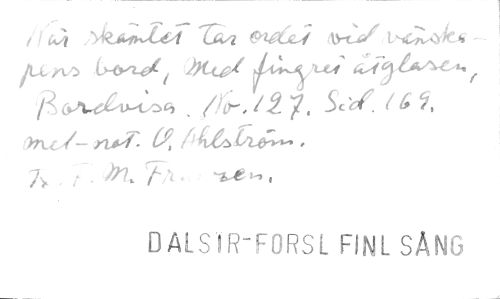 När skämtet tar ordet vid vänska-
pens bord, Med fingret åt glasen,
Bordvisa. No. 127. Sid. 169.
mel-not. O. Ahlström.
F. M.
DALSIR-FORSL FINL SÅNG